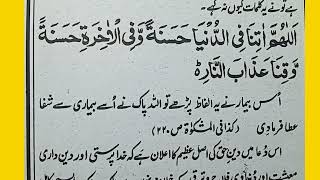 ہے تو نے یہ کلمات کیوں نہ کہے۔
اَللّٰهُمَّ اٰتِنَا فِي الدُّنْيَا حَسَنَةً وَّفِي الْاٰخِرَةِ حَسَنَةً
وَّقِنَا عَذَابَ النَّارِؕ
اُس بیمار نے یہ الفاظ پڑھے تو اللہ پاک نے اُسے بیماری سے شفا
عطا فرما دی (کذا فی المشکوٰۃ ص ۲۲۰)
اس دُعا میں دینِ حق کی اصلِ عظیم کا اعلان ہے کہ خدا پرستی اور دین داری